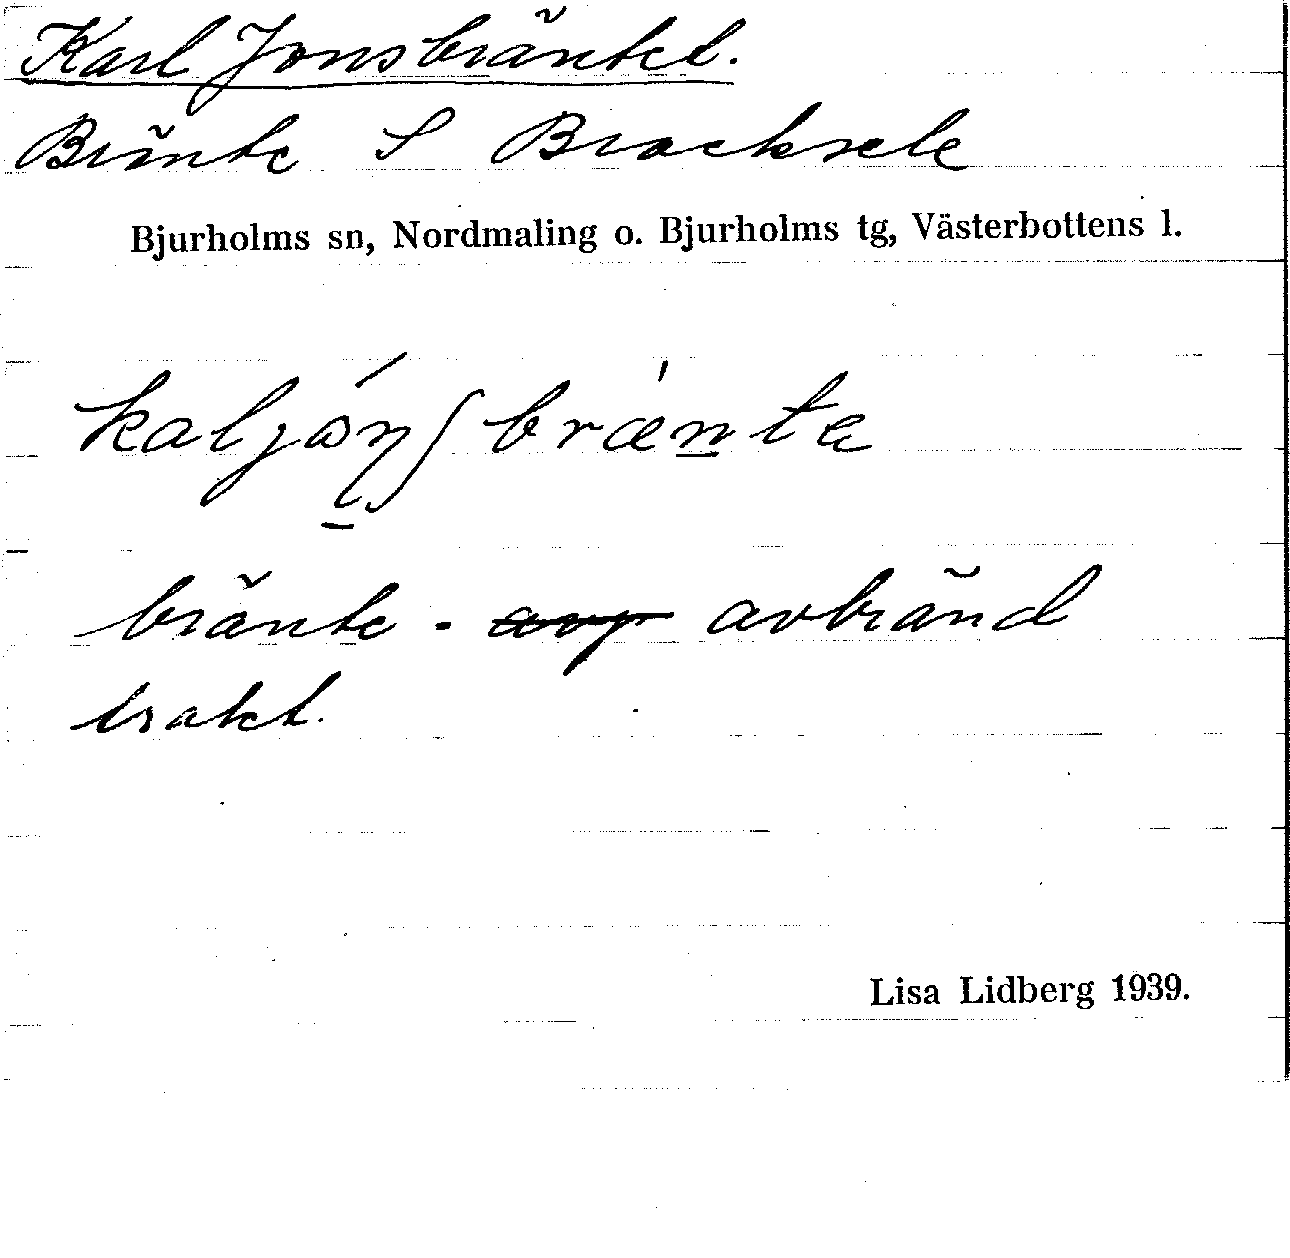 Karl Jonsbräntet.
Bränte S Bracksele
Bjurholms sn, Nordmaling o. Bjurholms tg, Västerbottens l.
bränte - avbränd
trakt.
Lisa Lidberg 1939.